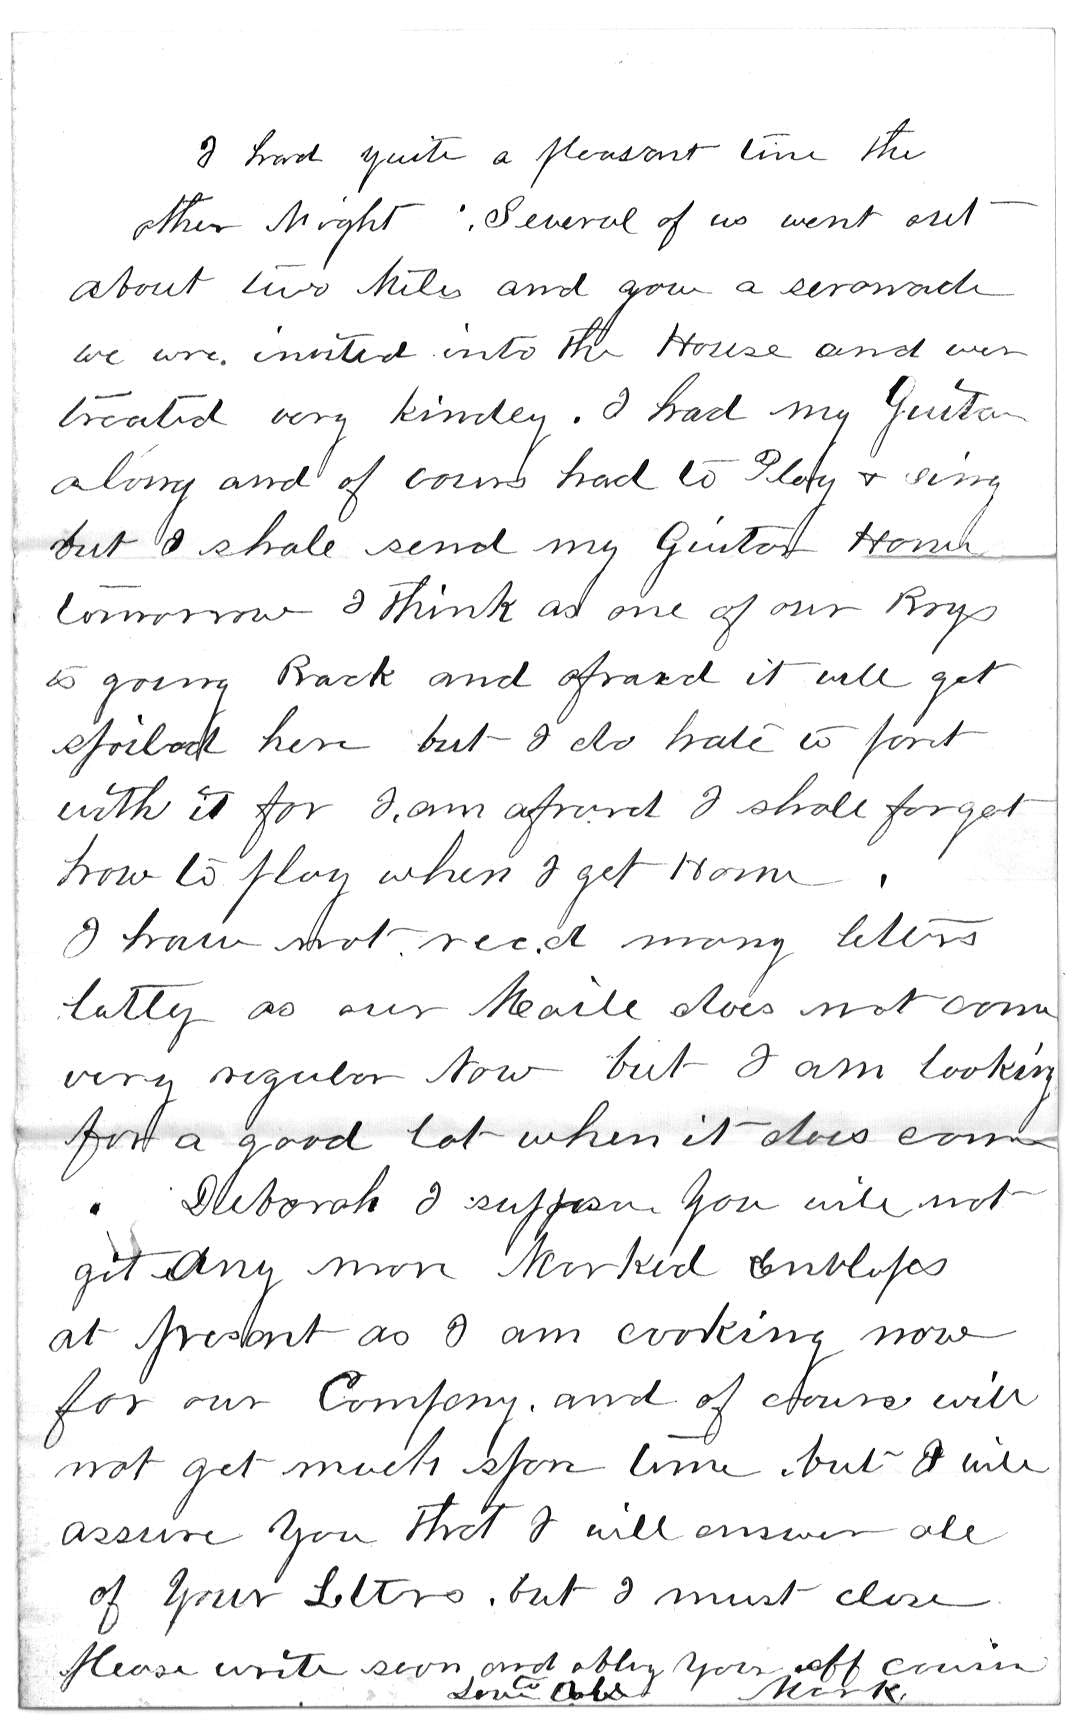 I had quite a pleasant time the
other Night . Several of us went out
about two Miles and gave a seranade
we wre. invited into the House and wer
treated very kindley . I had my Guitar
along and of cours had to Play & sing
but I shale send my Guitar Home
tomorrow I think as one of our Boys
is going Back and afraid it will get
spoiled here but I do hate to part
with it for I am afraid I shall forget
how to play when I get Home .
I have not rec.d many letters
latly as our Maile does not come
very regular Now but I am looking
for a good lot when it does come
. Deborah I suppose You will not
git Any more Marked Envelopes
at present as I am cooking now
for our Company . and of course will
not get much spare time . but I will
assure You that I will answer all
of Your Letters . but I must close
Please write soon and oblig Your aff cousin
Love to Mark.